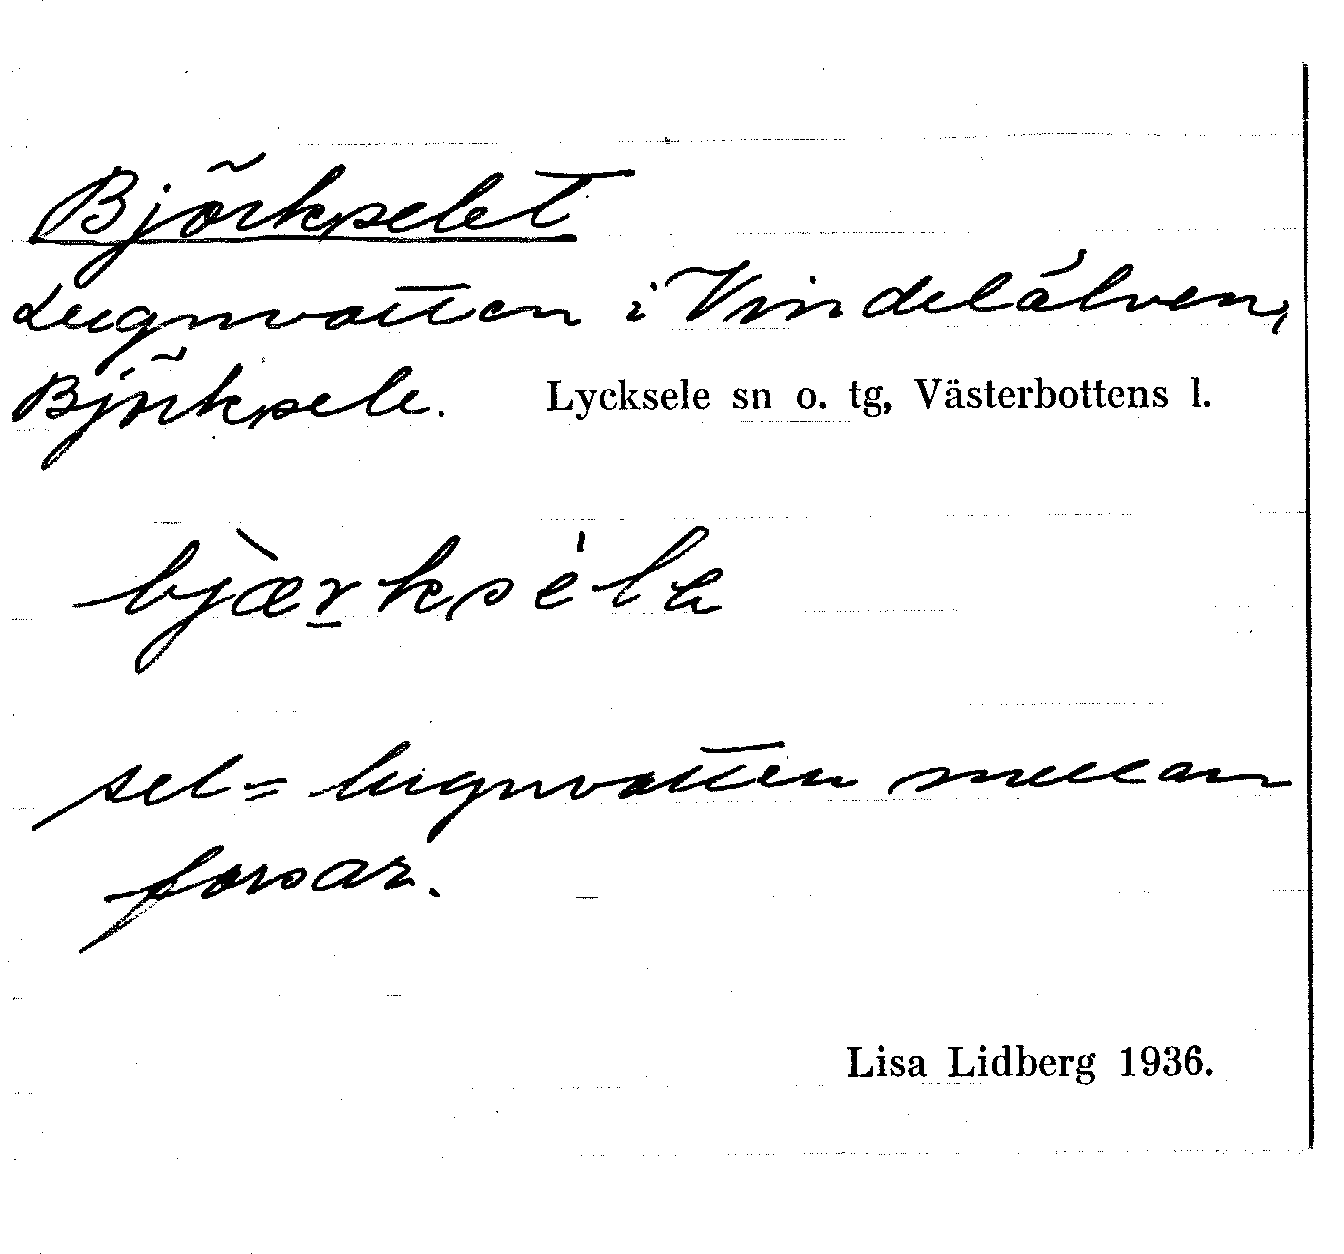 Björkselet
Lugnvatten i Vindelälven,
Björksele. Lycksele sn o. tg, Västerbottens l.
bjæ̀rksélɐ
sel = lugnvatten mellan
forsar.
Lisa Lidberg 1936.